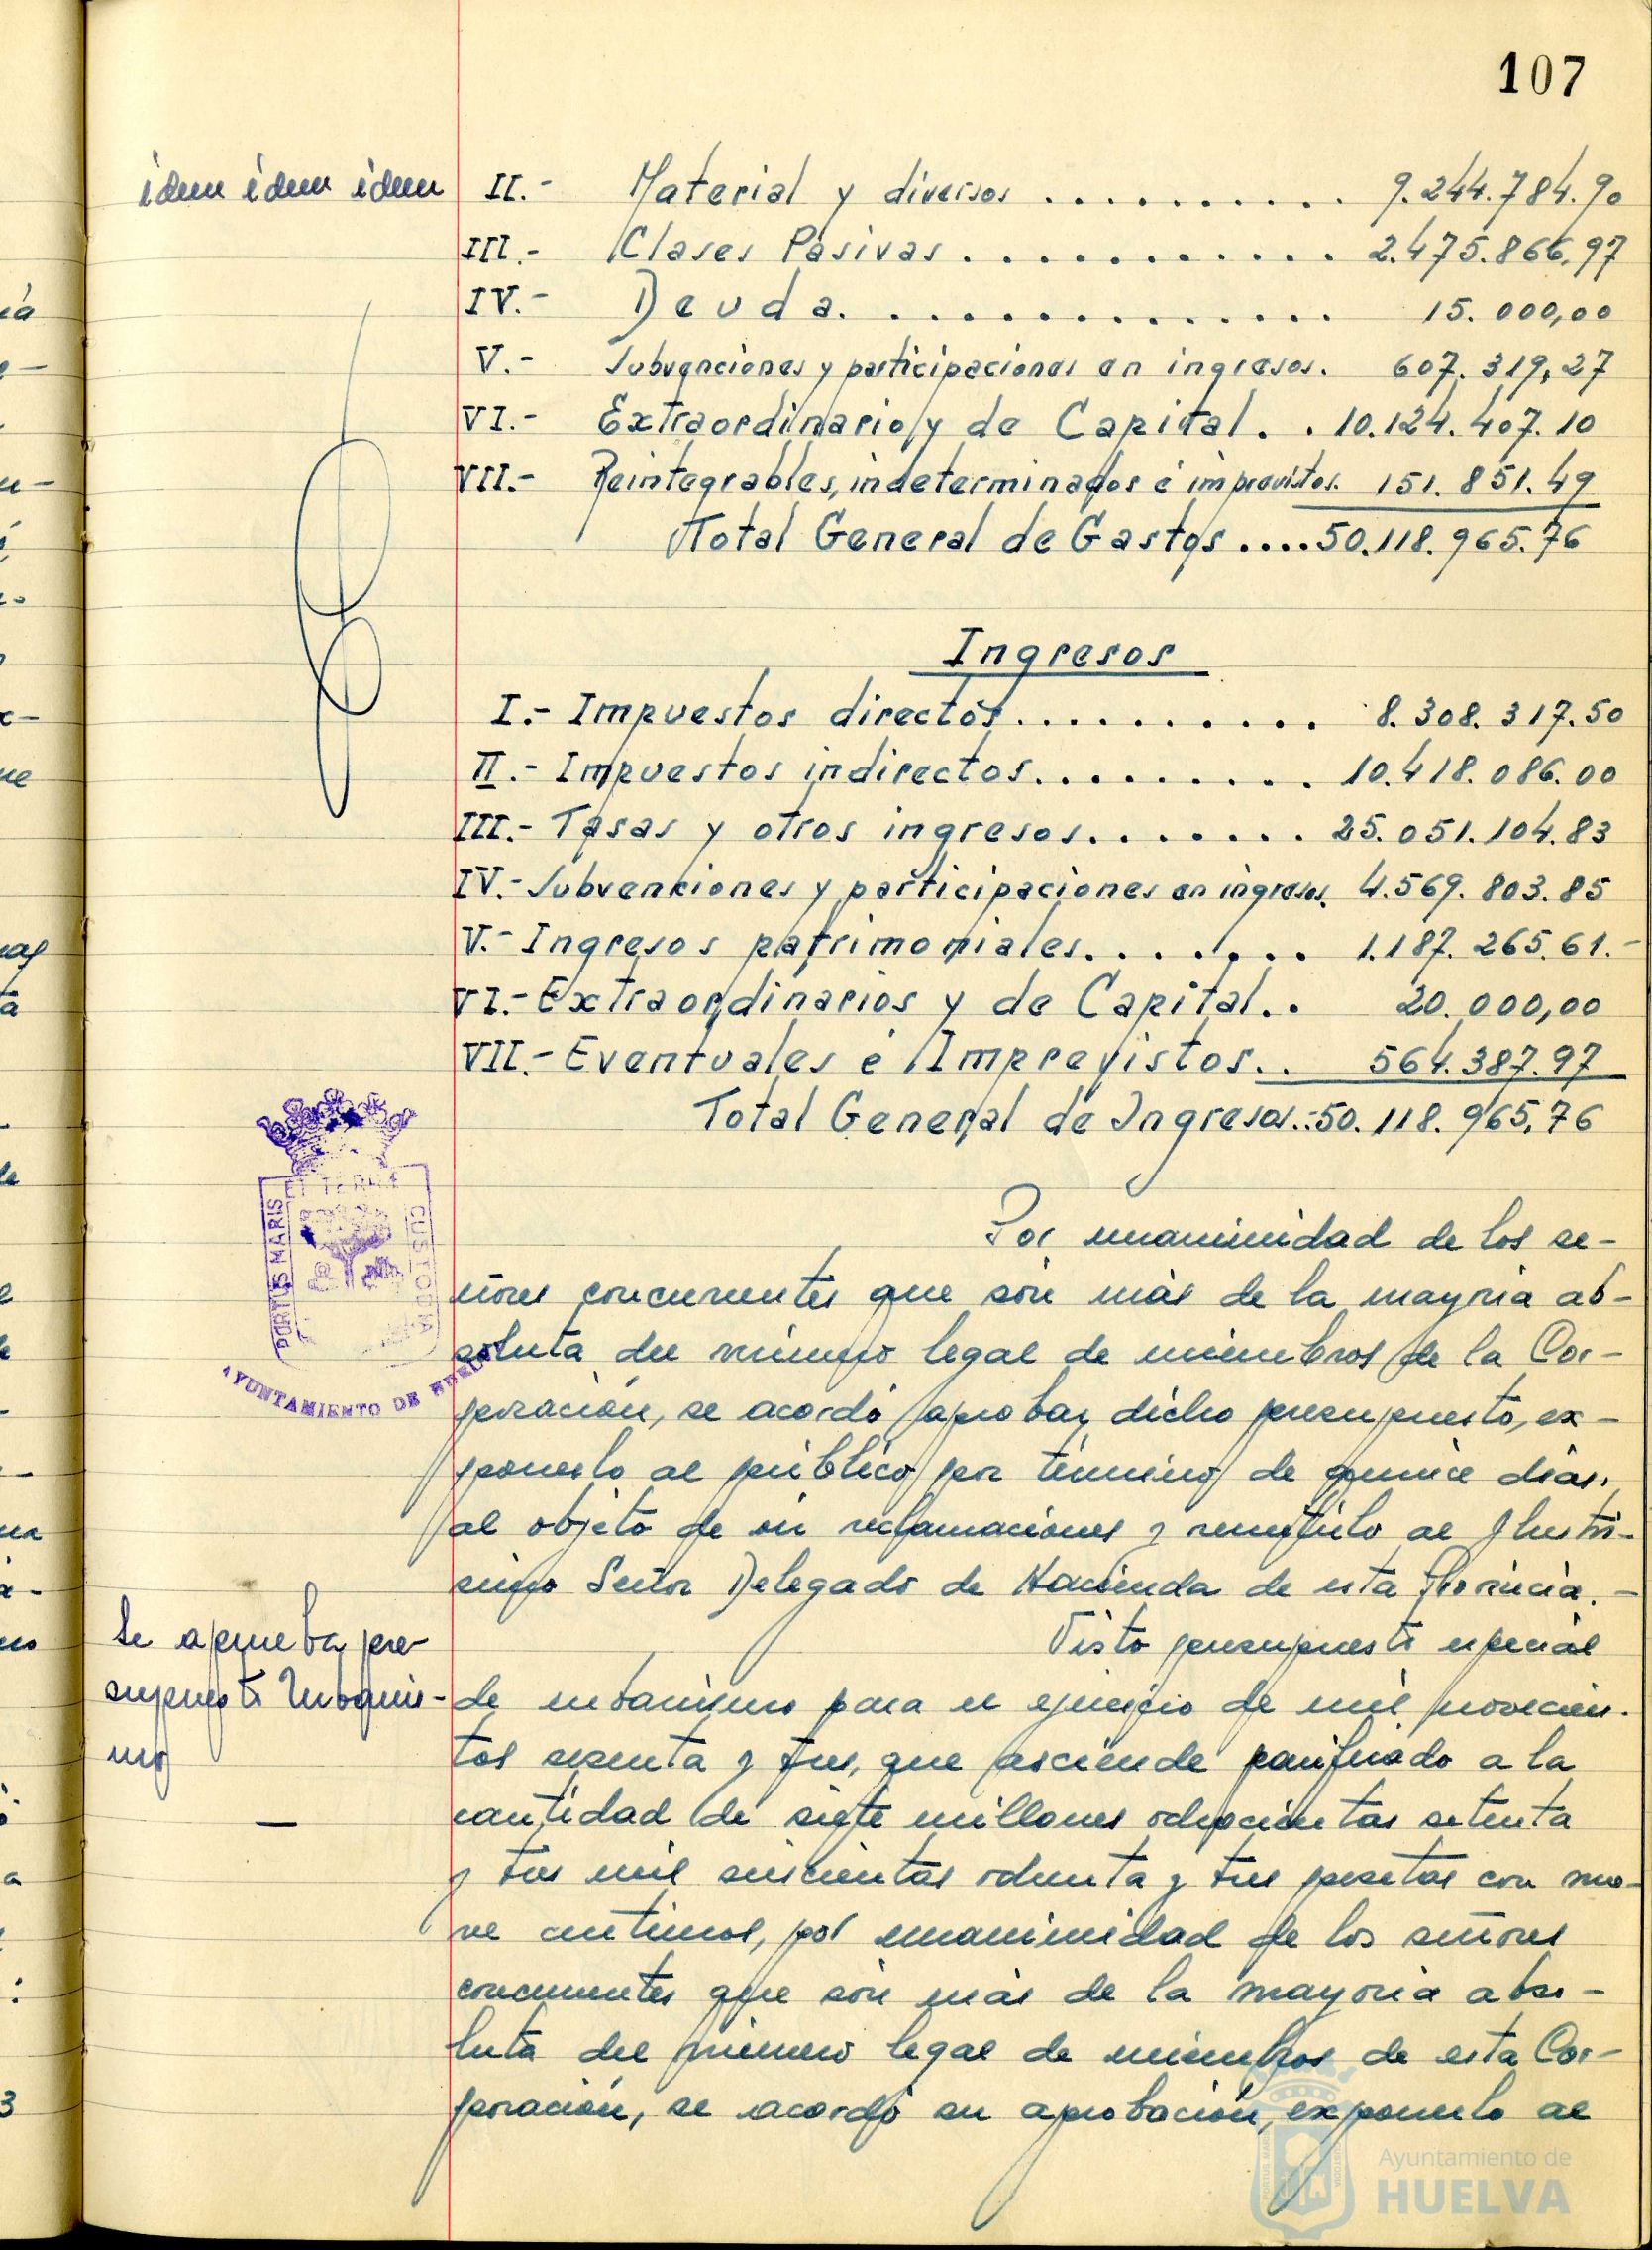 107
idem idem idem
II.- Material y diversos .......... 9.244.784.90
III.- Clases Pasivas ........... 2.475.866,97
IV.- Deuda. ............. 15.000,00
V.- Subvenciones y participaciones en ingresos. 607.319,27
VI.- Extraordinario y de Capital. . 10.124.407.10
VII.- Reintegrables, indeterminados é imprevistos. 151.851.49
Total General de Gastos .... 50.118.965.76
Ingresos
I.- Impuestos directos........... 8.308.317.50
II.- Impuestos indirectos.......... 10.418.086.00
III.- Tasas y otros ingresos........ 25.051.104.83
IV.- Subvenciones y participaciones en ingresos. 4.569.803.85
V.- Ingresos patrimoniales........ 1.187.265.61.-
VI.- Extraordinarios y de Capital.. 20.000,00
VII.- Eventuales é Imprevistos. . 564.387.97
Total General de Ingresos..:50.118.965,76
ET TERRE
PORTUS MARIS
CUSTODIA
AYUNTAMIENTO DE HUELVA
Por unanimidad de los se-
ñores concurrentes que són más de la mayoria ab-
soluta del número legal de miembros de la Cor-
poración, se acordó aprobar dicho presupuesto, ex-
ponerlo al público por término de quince dias,
al objeto de oir reclamaciones y remitirlo al Ilustri-
simo Señor Delegado de Hacienda de esta Provincia.-
Se aprueba pre-
supuesto Urbanis-
mo
Visto presupuesto especial
de urbanismo para el ejercicio de mil novecien-
tos sesenta y tres, que asciende panificado a la
cantidad de siete millones ochocientas setenta
y tres mil seiscientas ochenta y tres pesetas con nue-
ve centimos, por unanimidad de los señores
concurrentes que són más de la mayoria abso-
luta del número legal de miembros de esta Cor-
poración, se acordó su aprobación, exponerlo al
Ayuntamiento de
HUELVA